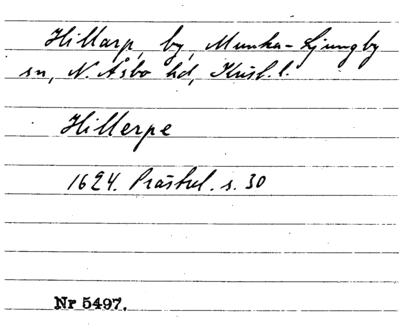 Hillarp, by, Munka-Ljungby
sn, N. Åsbo hd, Krist. l.
Hillerpe
1624. Prästrel. s. 30
Nr 5497.